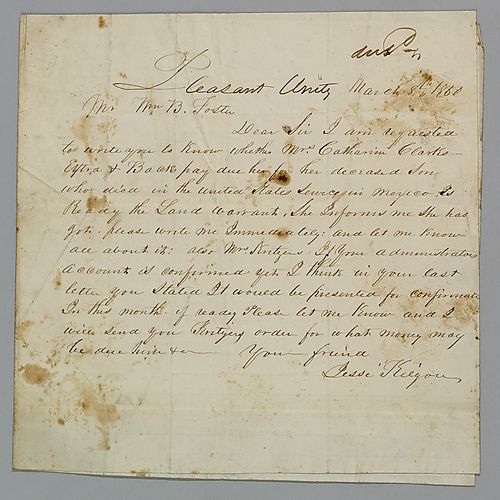 ansd
Pleasant Unity March 8th 1850
Mr Wm B. Foster
Dear Sir I am requested
to write you to know whether Mrs Catharine Clarks
Extra & Back pay due her for her deceased Son
who died in the United States Service in Mexico is
Ready the Land Warrant, She Informs me She has
got, please write me Immediately; and let me know
all about it; also Mrs Kintzers If your administrator
account is confirmed yet I think in your last
letter you Stated It would be presented for confirmation
In this month if ready Please let me know and I
will send you Kintzers order for what money may
be due him &c Your friend
Jesse Kilgore